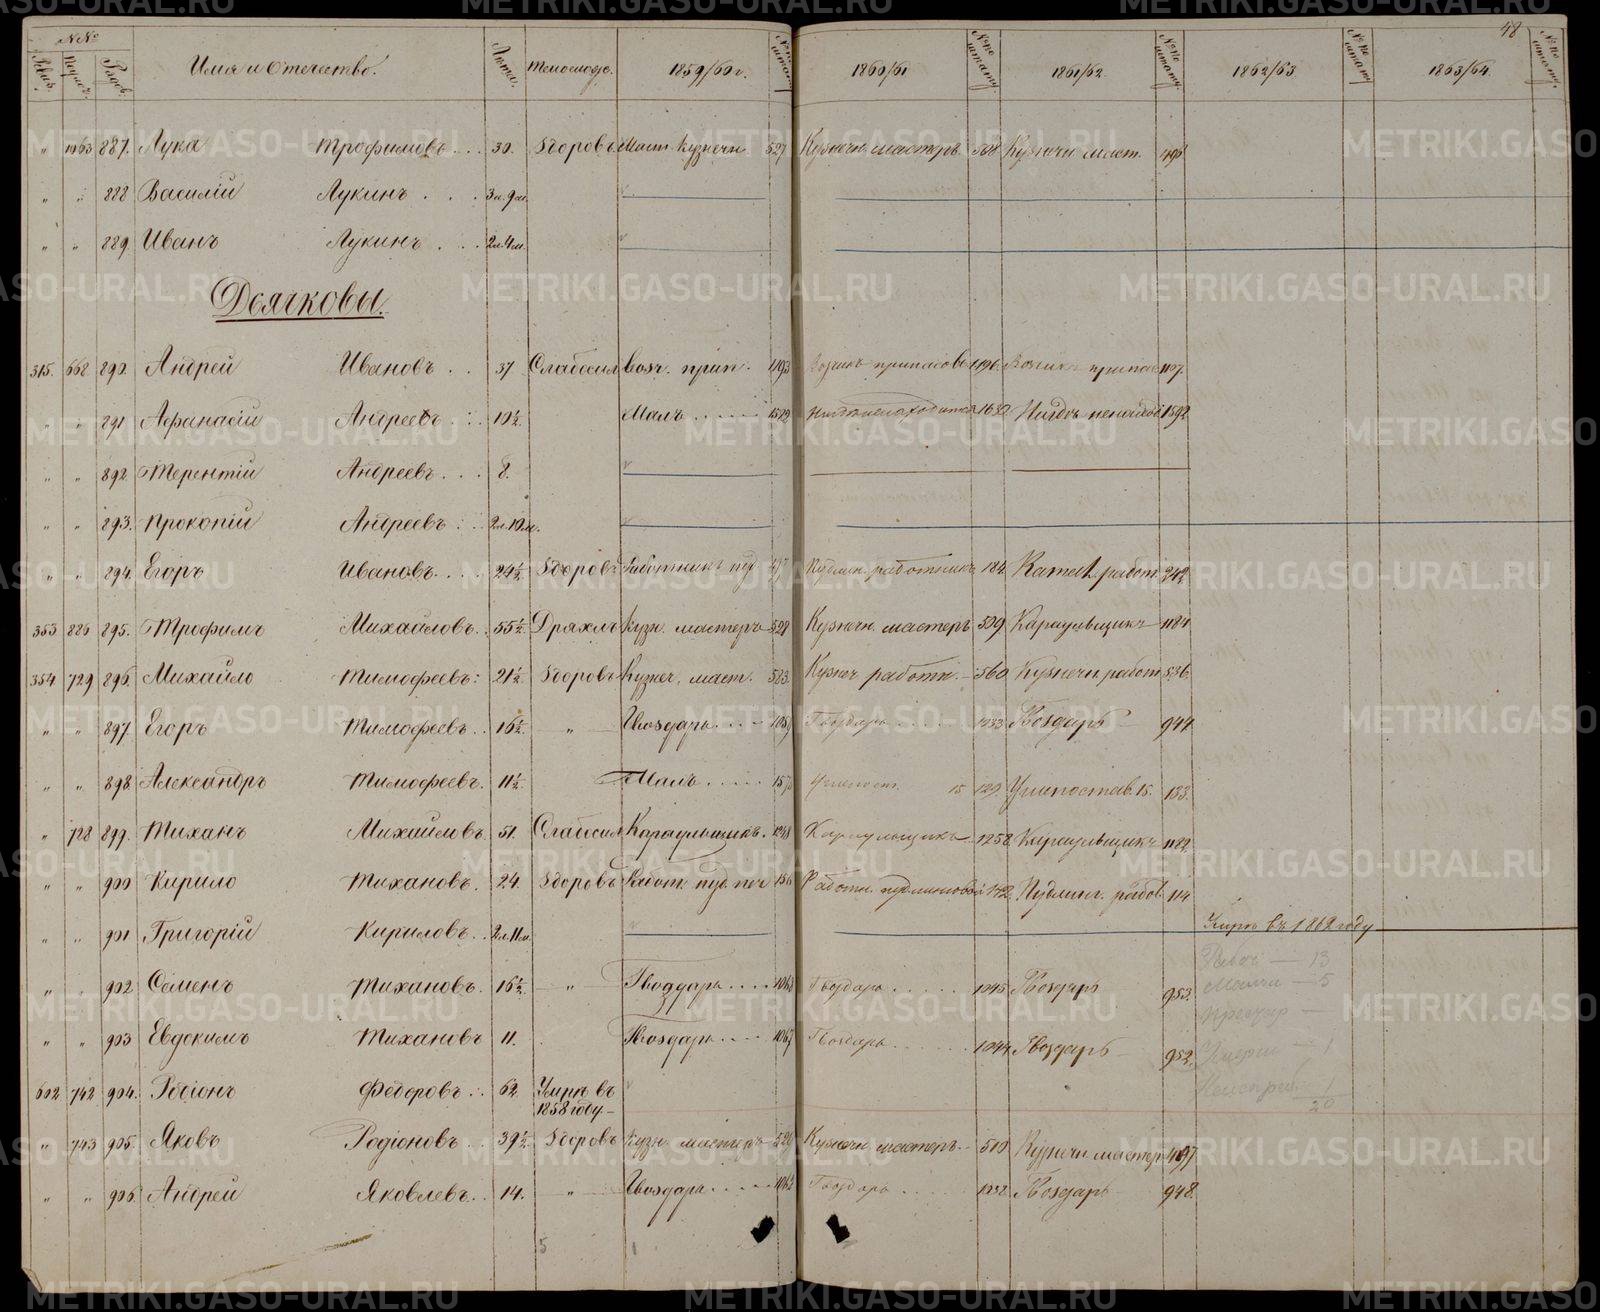 48
№№ Имя и Отечество. Лета. Телослож. 1859/60 г. №№ штату 1860/61 №№ штату 1861/62. №№ штату 1862/63 №№ штату 1863/64. №№ штату
" 1063 887. Лука Трофимовъ . . . 30. Здоровъ Маст. кузнечн 527 Кузнечн. мастеръ. 508 Кузнечн. маст. 498
" " 888 Василій Лукинъ . . . 3 л. 9 м.
" " 889. Иванъ Лукинъ . . . 2 л. 4 м.
Деячковы.
315. 668 890. Андрей Ивановъ . . 37 Слабосил возч. прип. 1193 припасовъ 1196. припас 1107.
" " 891 Афанасій Андреевъ . . 10½. Малъ . . . . . . 1529 1632 Нигдѣ ненаход 1592
" " 892 Терентій Андреевъ. . . 8.
" " 893. Прокопій Андреевъ . . 2 л. 10 м.
" " 894. Егоръ Ивановъ. . . . 24½. Здоровъ Работникъ пуд Пудлин. работникъ 184. работ. 242.
353 886 895. Трофимъ Михайловъ. . 55½. Дряхлъ Кузн. мастеръ 528 Кузнечн. мастеръ 509 Караульщикъ 1184
354 729 896. Михайло Тимофеевъ. 21½. Здоровъ Кузнеч. маст. 583. Кузнеч. работн. 560 Кузнечн. работн. 536.
" " 897. Егоръ Тимофеевъ . . 16½. " Гвоздарь . . . . Гвоздарь 1033 Гвоздарь 944.
" " 898. Александръ Тимофеевъ. 11½. Малъ . . . . . 15 129. 15. 133.
" 728 899. Тиханъ Михайловъ. 51. Слабосил Караульщикъ. 1248 Караульщикъ 1258. Караульщикъ 1182.
" " 900 Кирило Тихановъ. 24. Здоровъ Работ. пуд. печ Работн. пудлинговой 142. Пудлинг. работ. 114
" " 901 Григорій Кириловъ. . 2 л. 11 м. Умре въ 1862 году
" " 902 Семенъ Тихановъ. 16½. " Гвоздарь . . . . 1068 Гвоздарь . . . . . 1045 Гвоздарь 953.
" " 903 Евдокимъ Тихановъ 11. Гвоздарь . . . . 1067 Гвоздарь . . . . . 1044 Гвоздарь 952.
— 13
— 5
— 1
1
20
602 742 904. Родіонъ Федоровъ . . 62. Умре въ
1858 году —
" 743 905. Яковъ Родіоновъ . . 39½. Здоровъ Кузн. мастеръ 529 Кузнечн. мастеръ. 510 Кузнечн. мастер 497
" " 906. Андрей Яковлевъ. . 14. " Гвоздарь . . . . Гвоздарь . . . . 1038. Гвоздарь 948.
5
METRIKI.GASO-URAL.RU